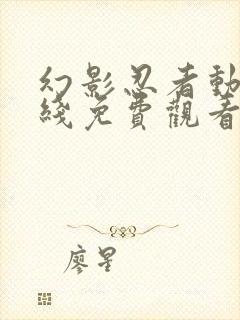 幻影忍者動
綫免費觀看
廖星